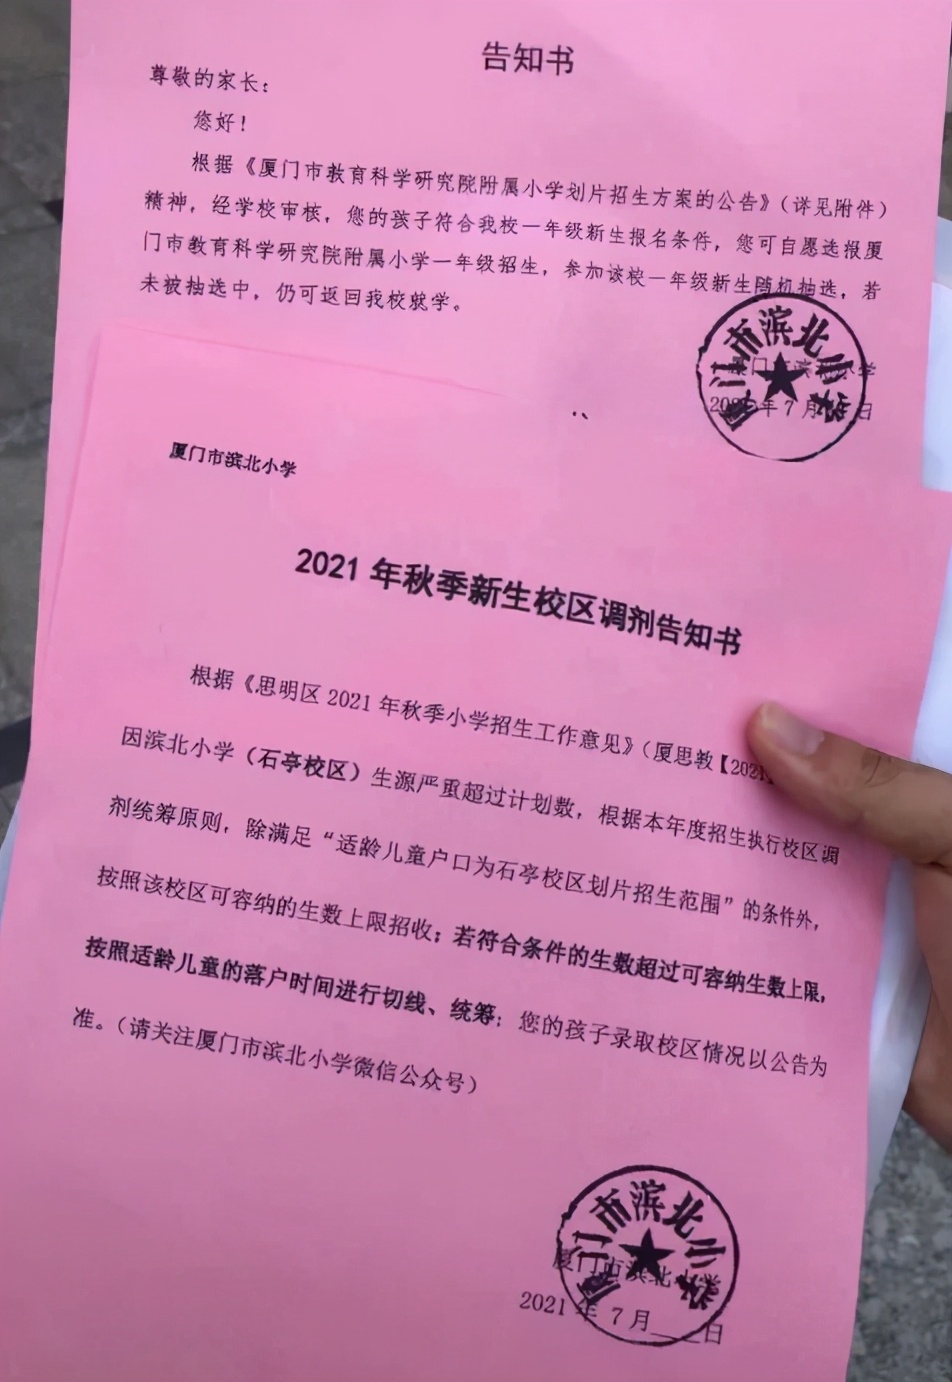 告知书
尊敬的家长：
您好！
根据《厦门市教育科学研究院附属小学划片招生方案的公告》（详见附件）
精神，经学校审核，您的孩子符合我校一年级新生报名条件，您可自愿选报厦
门市教育科学研究院附属小学一年级招生，参加该校一年级新生随机抽选，若
未被抽选中，仍可返回我校就学。
厦门市滨北小学
厦门市滨北小学
年7月 日
厦门市滨北小学
2021年秋季新生校区调剂告知书
根据《思明区2021年秋季小学招生工作意见》（厦思教【2021
因滨北小学（石亭校区）生源严重超过计划数，根据本年度招生执行校区调
剂统筹原则，除满足“适龄儿童户口为石亭校区划片招生范围”的条件外，
按照该校区可容纳的生数上限招收；若符合条件的生数超过可容纳生数上限，
按照适龄儿童的落户时间进行切线、统筹；您的孩子录取校区情况以公告为
准。（请关注厦门市滨北小学微信公众号）
厦门市滨北小学
厦门市滨北小学
2021年7月___日